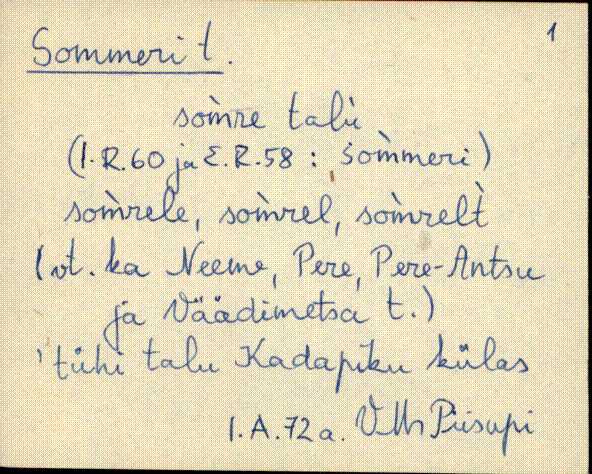 1
Sommeri t.
som̀re talù
(I.R.60 ja E.R.58 : som̀meri)
som̀rele, som̀rel, som̀relt̀
(vt. ka Neeme, Pere, Pere-Antsu
ja Väädimetsa t.)
'tühi talu Kadapiku külas
I.A.72a. Piisupi